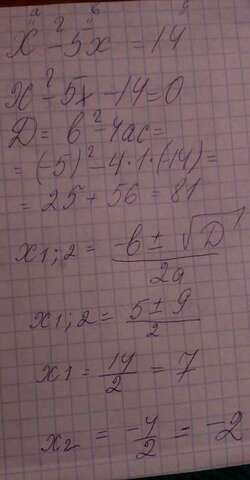 a b c
x² - 5x = 14
x² - 5x - 14 = 0
D = b² - 4ac =
= (-5)² - 4·1·(-14) =
= 25 + 56 = 81
x1;2 = (-b ± √D) / 2a
x1;2 = (5 ± 9) / 2
x1 = 14/2 = 7
x2 = -4/2 = -2